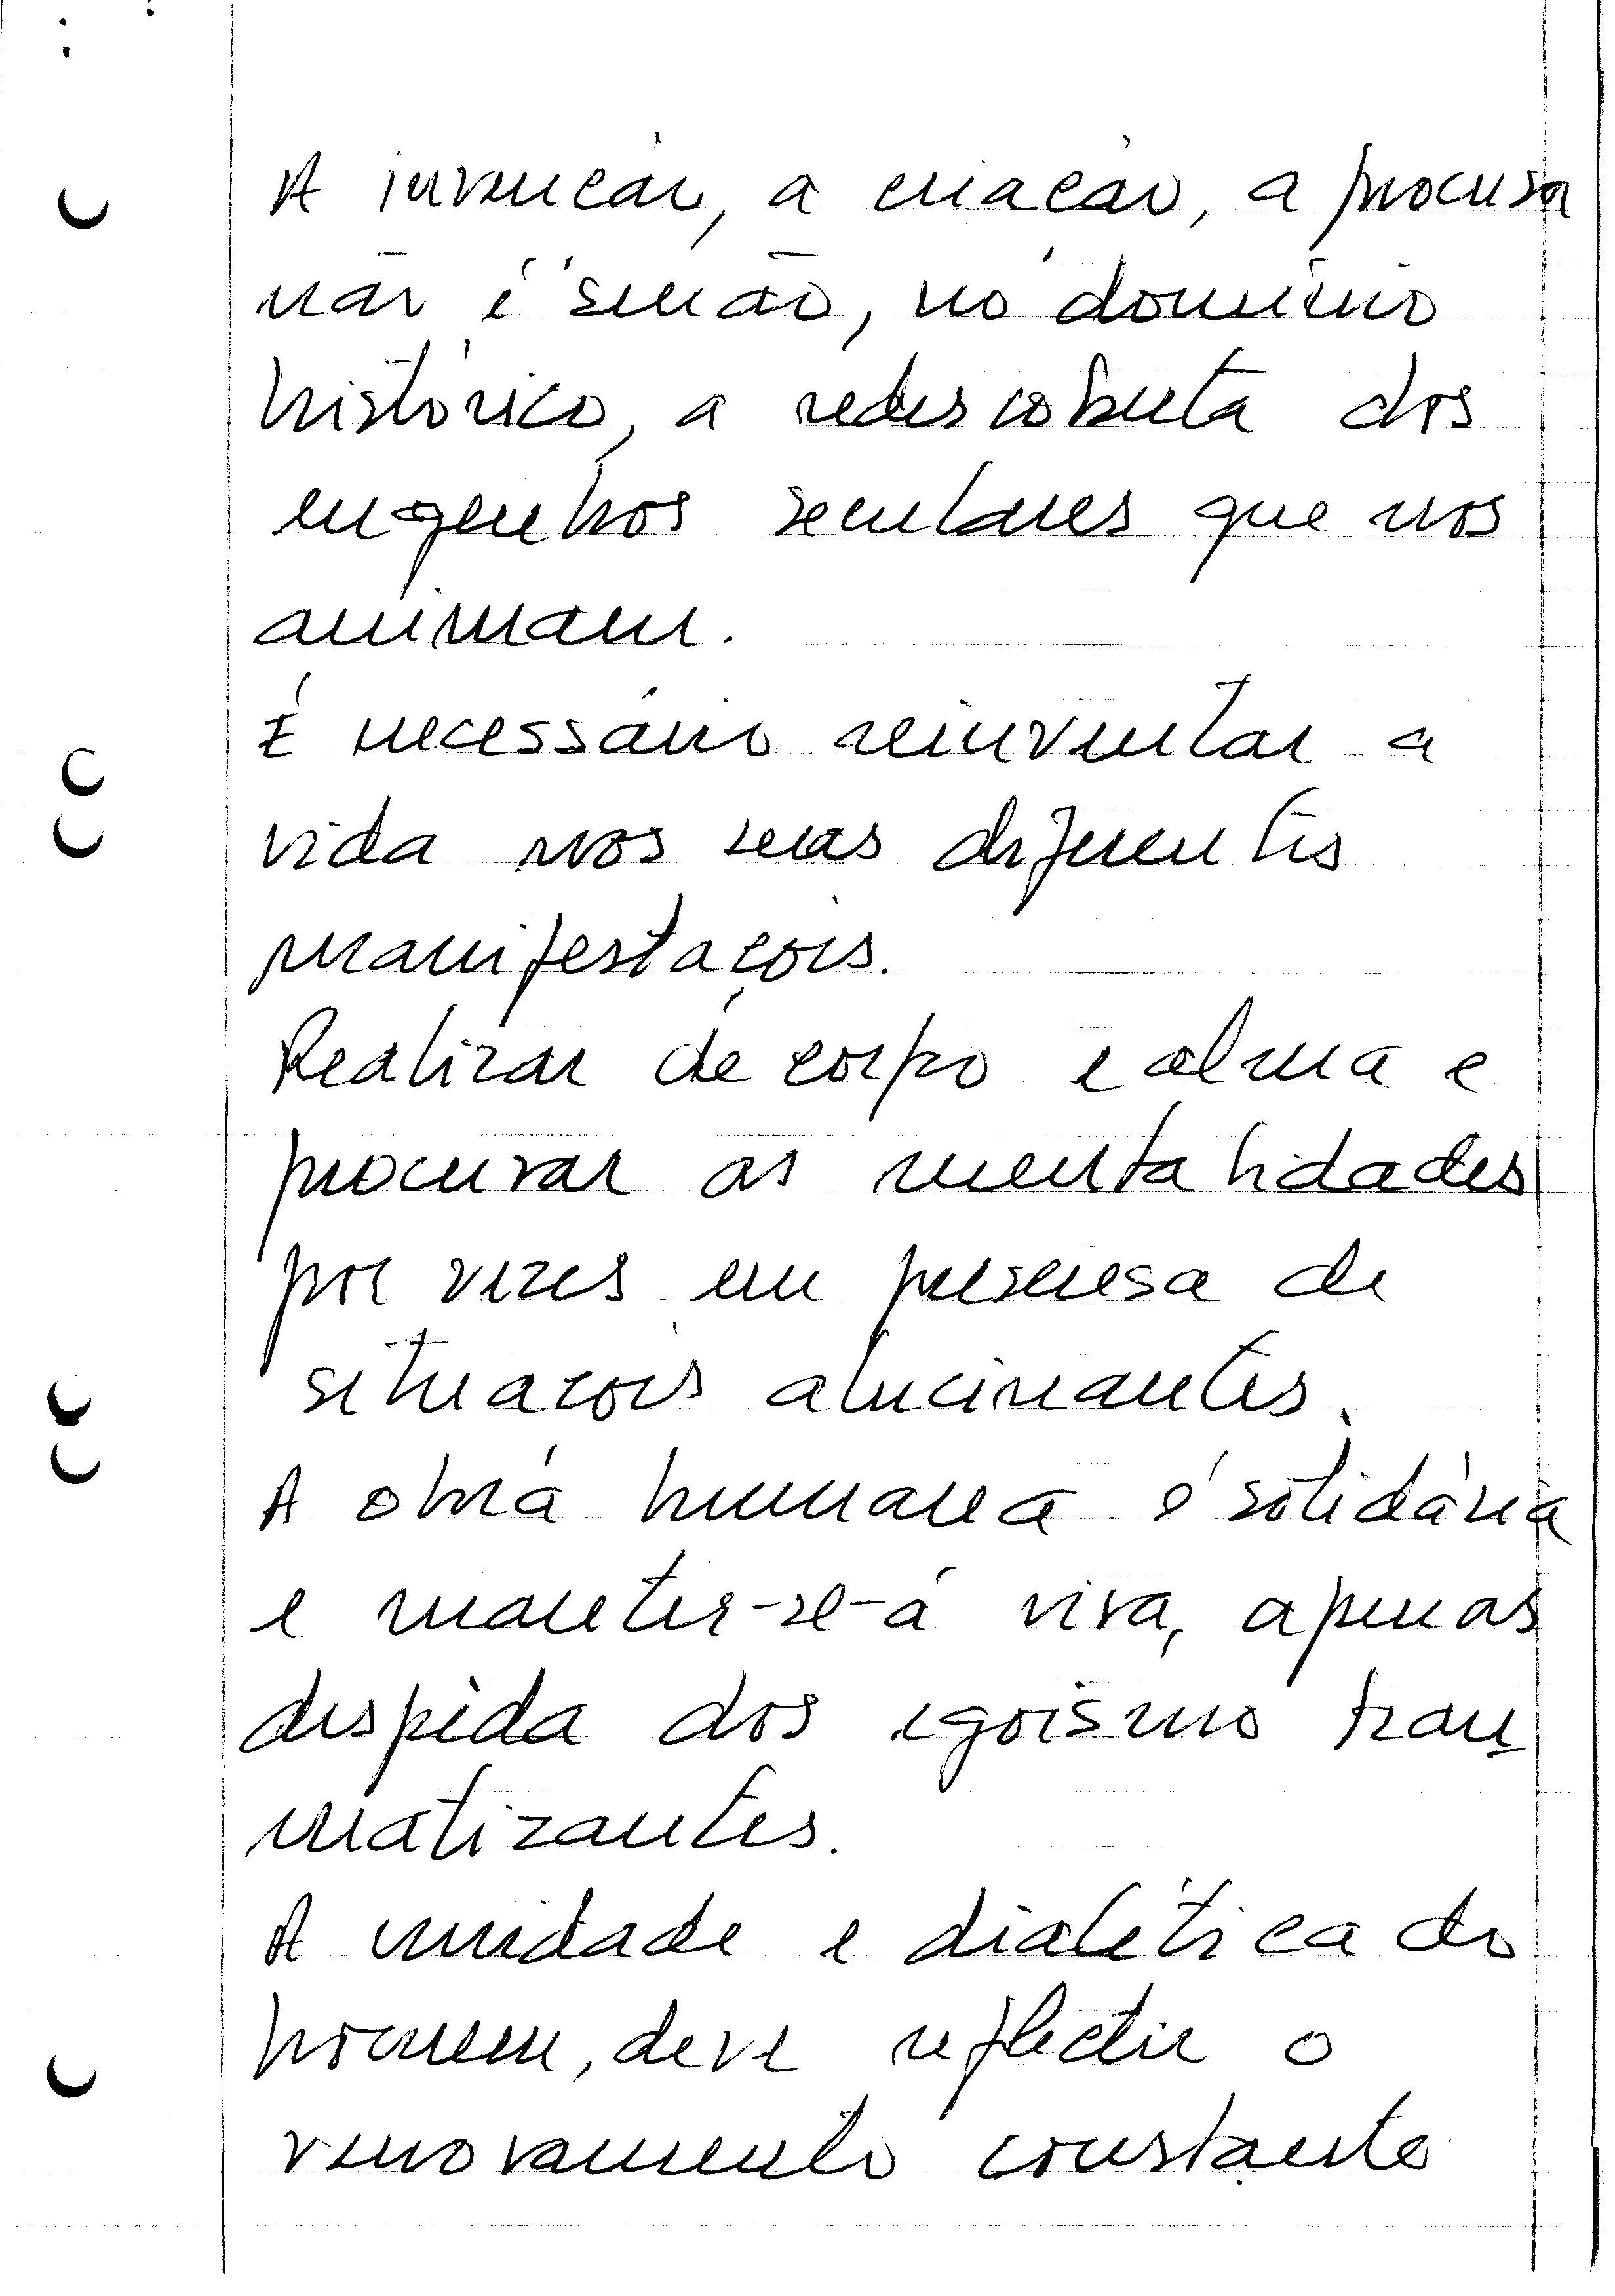 A invenção, a criação, a procura
não é senão, no domínio
histórico, a redescoberta dos
engenhos seculares que nos
animam.
É necessário reinventar a
vida nos seus diferentes
manifestações.
Realizar de corpo e alma e
procurar as mentalidades
por vezes em presensa de
situações alucinantes.
A obra humana é solidária
e manter-se-á viva, apenas
despida dos egoismo trau
matizantes.
A unidade e dialética do
homem, deve reflectir o
renovamento constante